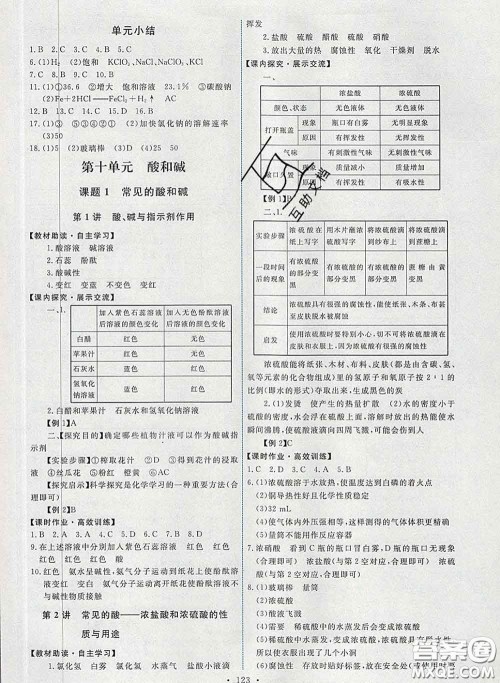 单元小结
1.B 2.C 3.A 4.C 5.B
6.(1)H₂ (2)饱和 KClO₃、NaClO₃、KCl
7.B 8.C 9.A 10.D
11.(1)36 增大 饱和溶液 23.1% ③碳酸钠
(2)Fe+2HCl══FeCl₂+H₂↑
12.B 13.D 14.C 15.B 16.D
17.(1)③ ⑤③④②① (2)加快氯化钠的溶解速率
(3)①⑤
18.(1)50 (2)玻璃棒 (3)4 25 (4)25
第十单元 酸和碱
课题1 常见的酸和碱
第1讲 酸、碱与指示剂作用
【教材助读·自主学习】
1.酸溶液 碱溶液
2.石蕊 酚酞
3.酸碱性
4.变红 变蓝 不变色 变红
【课内探究·展示交流】
一、1.
加入紫色石蕊溶液后溶液的颜色变化 加入无色酚酞溶液后溶液的颜色变化
白醋 红色 无色
苹果汁 红色 无色
石灰水 蓝色 红色
氢氧化钠溶液 蓝色 红色
2.白醋和苹果汁 石灰水和氢氧化钠溶液
【例1】A
二、【探究目的】确定哪些植物汁液可以作为酸碱指示剂
【实验步骤】(1)①榨取花汁 ②③ ④得到花汁的浸取液 ⑤丝瓜花 ⑥粉红 橙黄 ⑦黄
【探究启示】科学探究是化学学习的一种重要方法(合理即可)
【例2】B
【课时作业·高效训练】
1.C 2.B 3.D 4.B 5.A 6.D 7.C 8.B
9.在上述溶液中分别加入紫色石蕊溶液 红色 红色 红色 紫色 蓝色 蓝色
10.氨水呈碱性、氨气分子运动进入到烧杯使酚酞溶液变红 变白 氨气分子运动离开纸花使酚酞不能与碱性物质接触
第2讲 常见的酸——浓盐酸和浓硫酸的性质与用途
【教材助读·自主学习】
1.氯化氢 白雾 氯化氢 水蒸气 盐酸小液滴
挥发
2.盐酸 硫酸 醋酸 硫酸 硝酸
3.放出大量的热 腐蚀性 氧化 干燥剂 脱水
【课内探究·展示交流】
一、
浓盐酸 浓硫酸
颜色、状态 无色液体 无色液体
打开瓶盖 现象 瓶口有白雾 无明显现象
原因 有挥发性 无挥发性
气味 有刺激性气味 无刺激性气味
【例1】B
二、1.
实验步骤 浓硫酸在纸上写字 用木片蘸浓硫酸写字 浓硫酸滴到纱布上 浓硫酸滴到蔗糖上
一段时间后的现象 有浓硫酸的部分变黑 有浓硫酸的部分变黑 有浓硫酸的部分变黑 蔗糖由黄变黑
结论 浓硫酸具有很强的腐蚀性,能使纸张、木条、布条脱水碳化
启发 使用浓硫酸时要特别小心,切不可将浓硫酸弄在皮肤和衣服上,因为浓硫酸有很强的腐蚀性
浓硫酸能将纸张、木材、布料、皮肤(都是由含碳、氢、氧等元素的化合物组成)里的氢原子和氧原子按2∶1的比例(即水的形式)夺取出来,生成黑色的炭
2.(1)发烫 使产生的热量扩散 (2)水的密度小于硫酸的密度,水会浮在硫酸上面,溶解时放出的热能使水瞬间沸腾,使硫酸液滴向四周飞溅(合理即可)
【例2】C
【课时作业·高效训练】
1.C 2.D 3.C 4.A 5.D
6.(1)浓硫酸溶于水放热,使温度达到白磷的着火点
(2)铜导热性好且浓硫酸具有腐蚀性
(3)32 mL
(4)使气体内外压强相等,可能会发生飞溅现象
(5)量筒不能作反应容器
7.浓硝酸 看到C瓶的瓶口冒白雾,D瓶的瓶口无现象(合理即可) 浓盐酸(与第2空对应,合理即可) 浓硫酸(与第2空对应,合理即可)
8.(1)玻璃棒 量筒
(2)浓硫酸
(3)Ⅰ.需要 稀硫酸中的水逐渐减少后变成浓硫酸
Ⅱ.稀硫酸滴在衣服上水逐渐减少变成了浓硫酸所以使衣服出现了几个小洞
(4)腐蚀性 存放时不能敞口放置(合理即可)
123
互助文档
答案圈
MXQE.COM